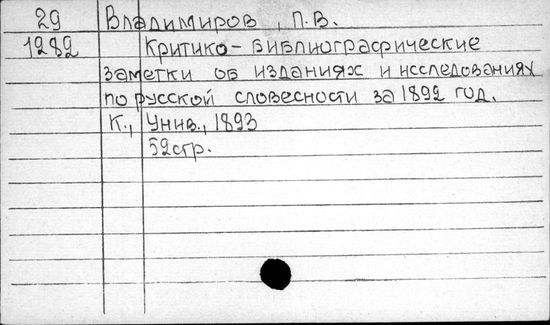 29 Владимиров, П.В.
1282 Критико-библиографические
заметки об изданиях и исследованиях
по русской словесности за 1892 год.
К., Унив., 1893
52стр.